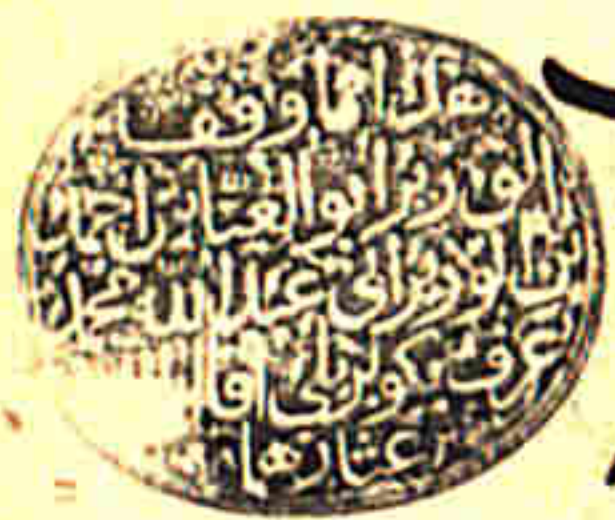 هذا ما وقفه
الوزير ابو العباس احمد
بن الوزير ابي عبد الله محمد
عرف بكوبريلي اقا
عثارهما